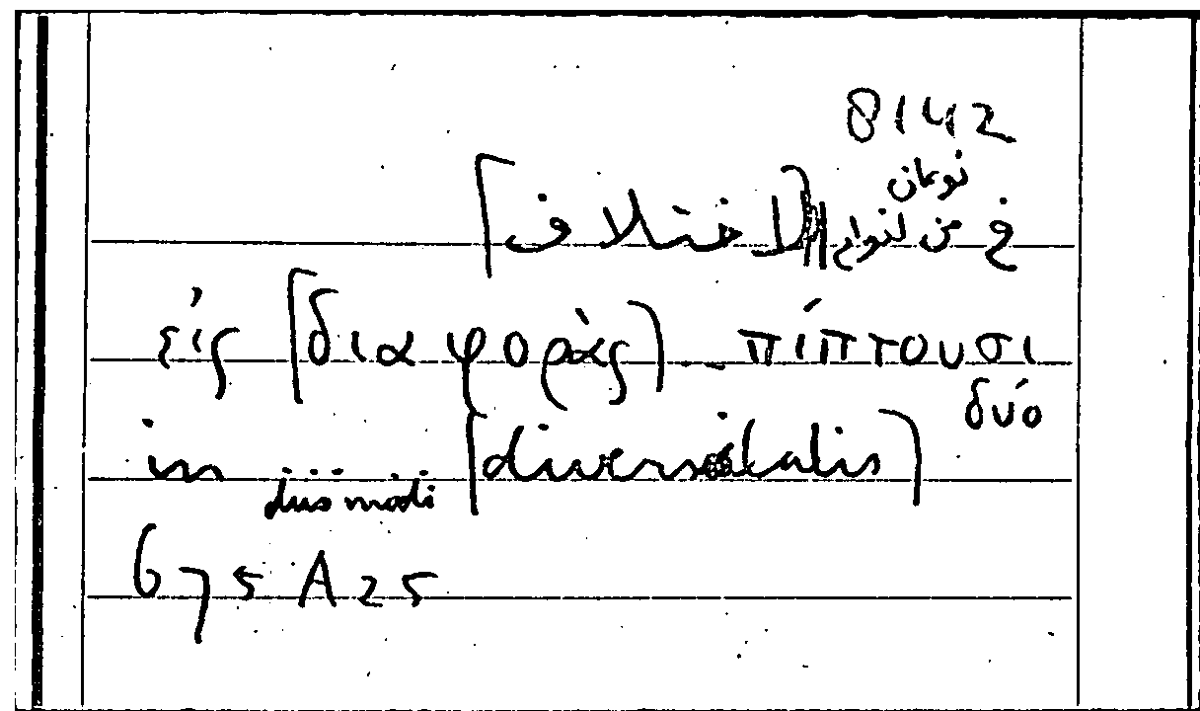 8142
نوعان
في من أنواع [الاختلاف]
εἰς [διαφορὰς] πίπτουσι
δύο
in [diversitatis]
duos modi
675 A 25